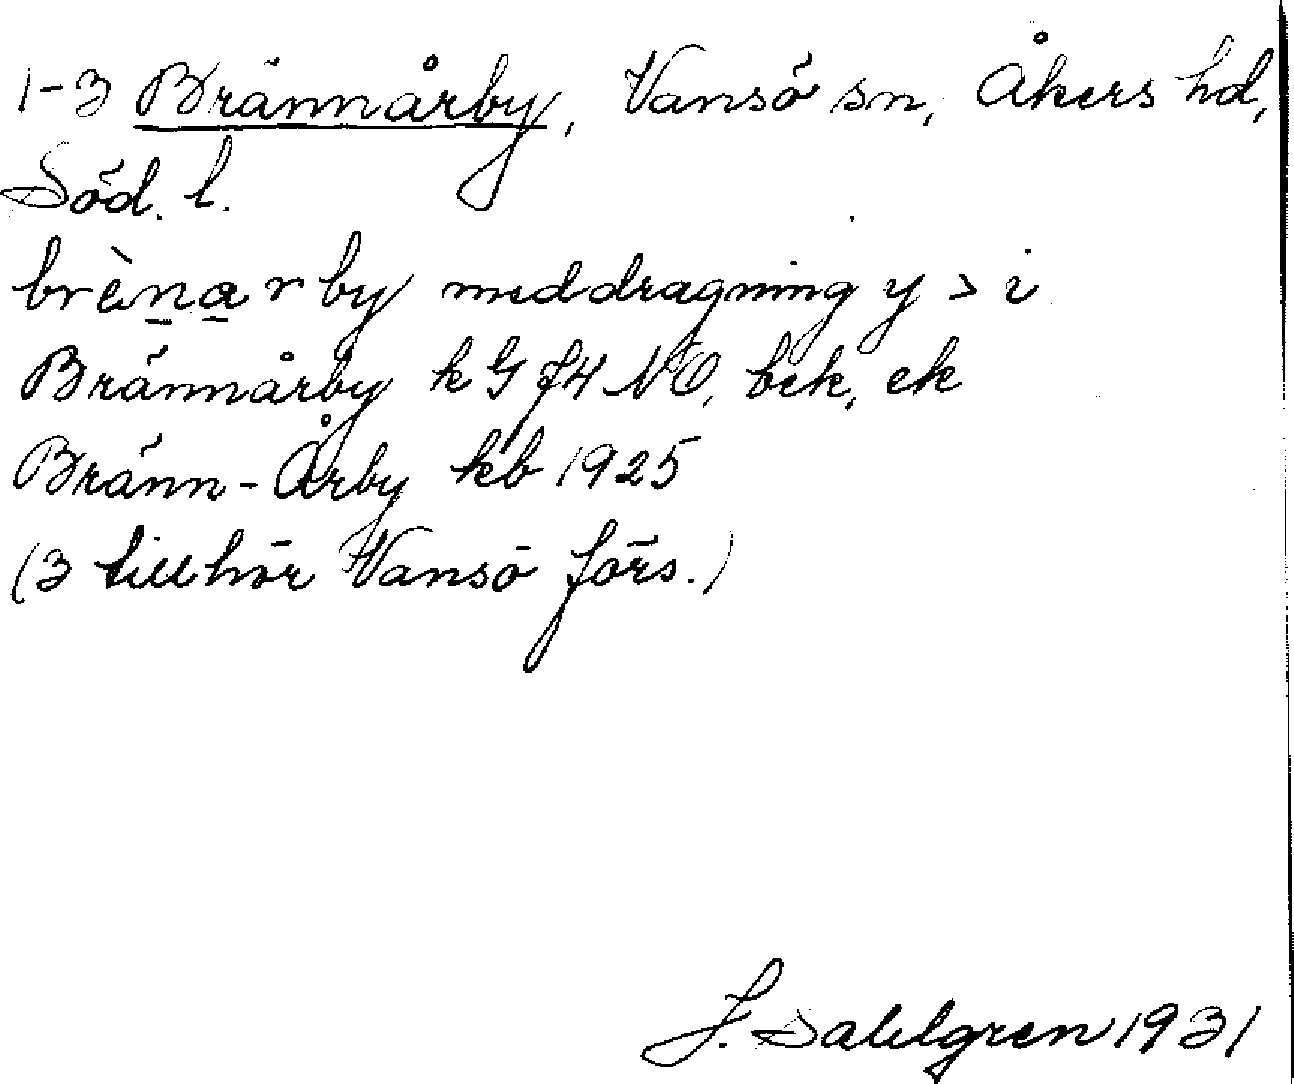 1-3 Brännårby, Vansö sn, Åkers hd,
Söd. l.
brèn̲a̲rby med dragning y > i
Brännårby k G f4 NO, bek, ek
Bränn-Årby kb 1925
(3 tillhör Vansö förs.)
J. Sahlgren 1931